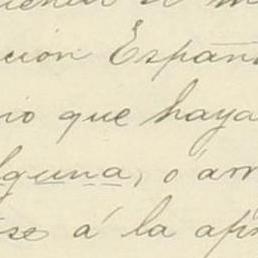 ción Españ
io que haya
lguna, ó am
se á la ap